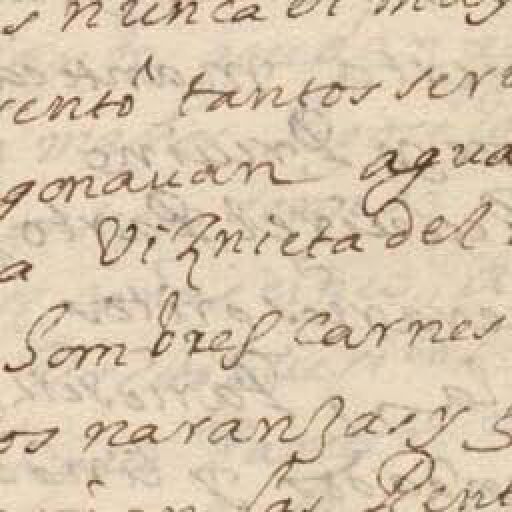 s nunca
tantos ser
gonauan agua
a Viznieta del
hombres carnes
os naranzas y
las Rent